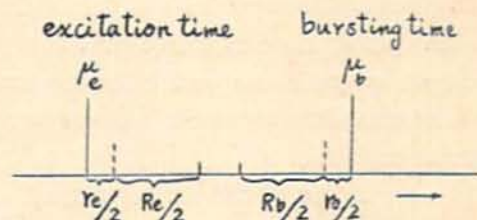 excitation time bursting time
μe μb
re/2 Re/2 Rb/2 rb/2